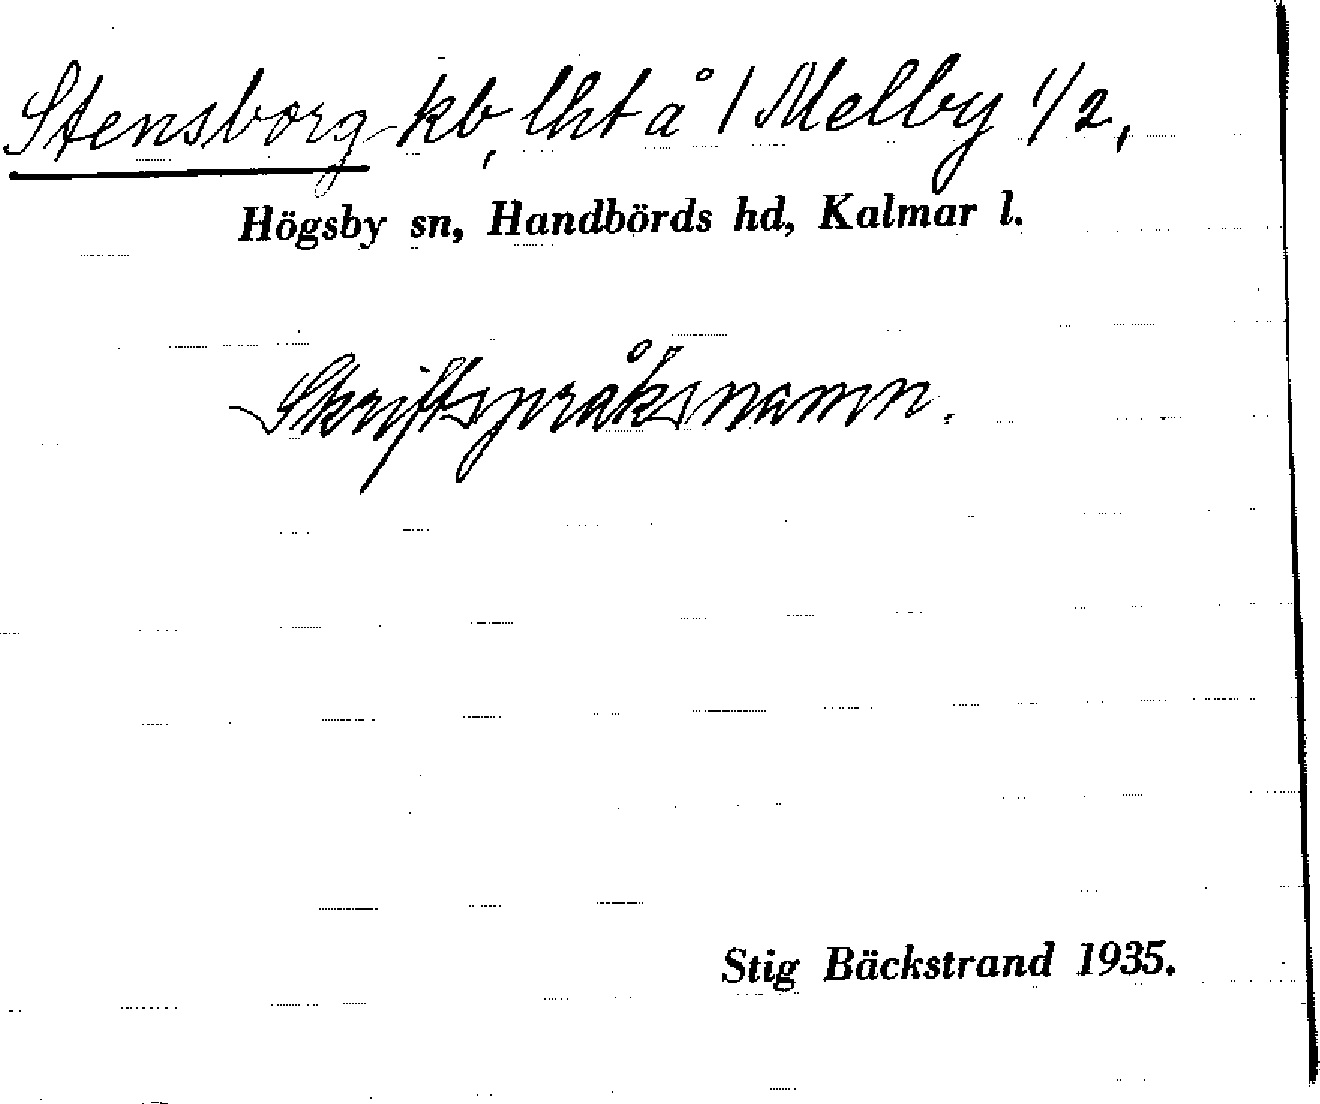 Stensborg kb, lht å 1 Melby 1/2,
Högsby sn, Handbörds hd, Kalmar l.
Skriftspråksnamn.
Stig Bäckstrand 1935.